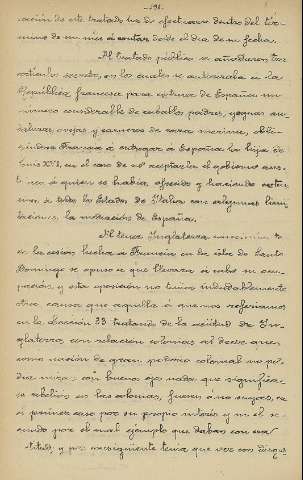 - 191. -
cación de este tratado ha de efectuarse dentro del tér-
mino de un mes á contar desde el dia de su fecha.
Al tratado público se añadieron tres
artículos secretos, en los cuales se autorizaba a la
República francesa para extraer de España un
número considerable de caballos padres, yeguas an-
daluzas, ovejas y carneros de raza merina, obli-
gándose Francia á entregar á España la hija de
Luis XVI, en el caso de no aceptarla el gobierno aust-
riaco á quien se habia ofrecido y haciendo exten-
siva á todos los Estados de Italia con algunas limi-
taciones, la mediación de España.
Al tener Inglaterra conocimiento
de la cesión hecha á Francia en la isla de Santo
Domingo se opuso á que llevara á cabo su ocu-
pación, y esta oposición no tuvo indudablemente
otra causa que aquella á que nos referíamos
en la lección 23 tratando de la actitud de In-
glaterra, con relación colonias al decir que
como nación de gran poderio colonial no po-
dia mirar con buenos ojos nada que significa-
se rebelión en las colonias, fueran ó no suyas, en
el primer caso por su propio interés y en el se-
gundo por el mal ejemplo que daban con su
actitud, y por consiguiente tenia que ver con disgus-